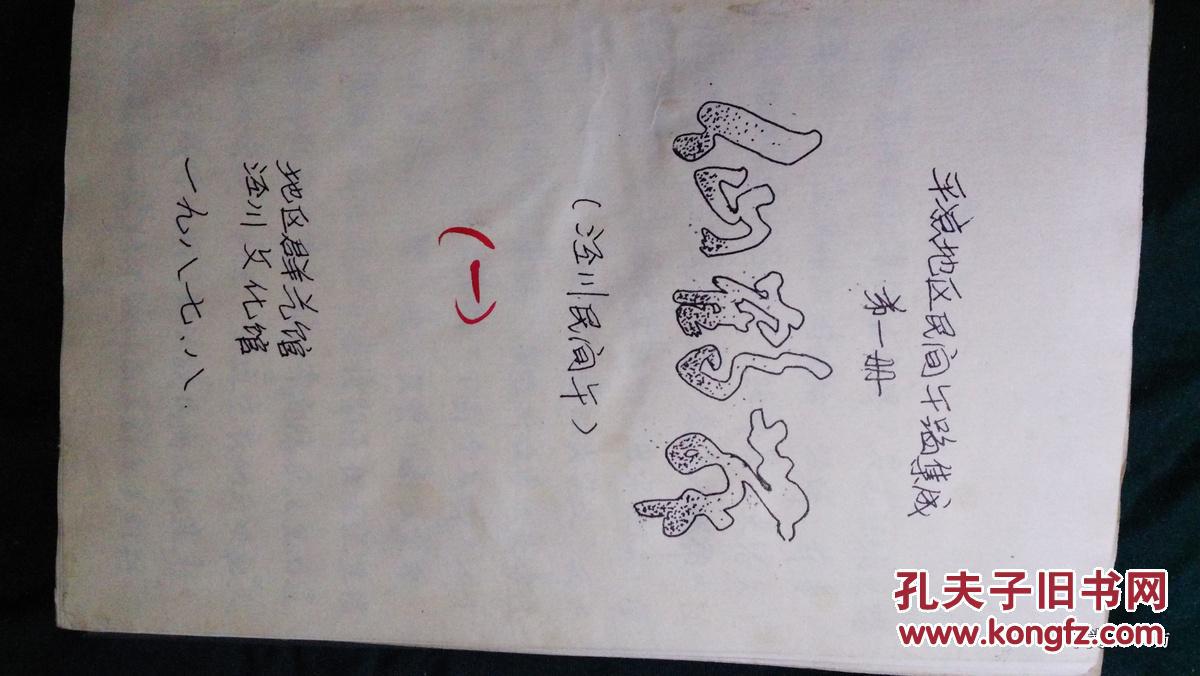 平凉地区民间午蹈集成
第一册
(泾川民间午)
(一)
地区群艺馆
泾川文化馆
一九八七.八
孔夫子旧书网
www.kongfz.com